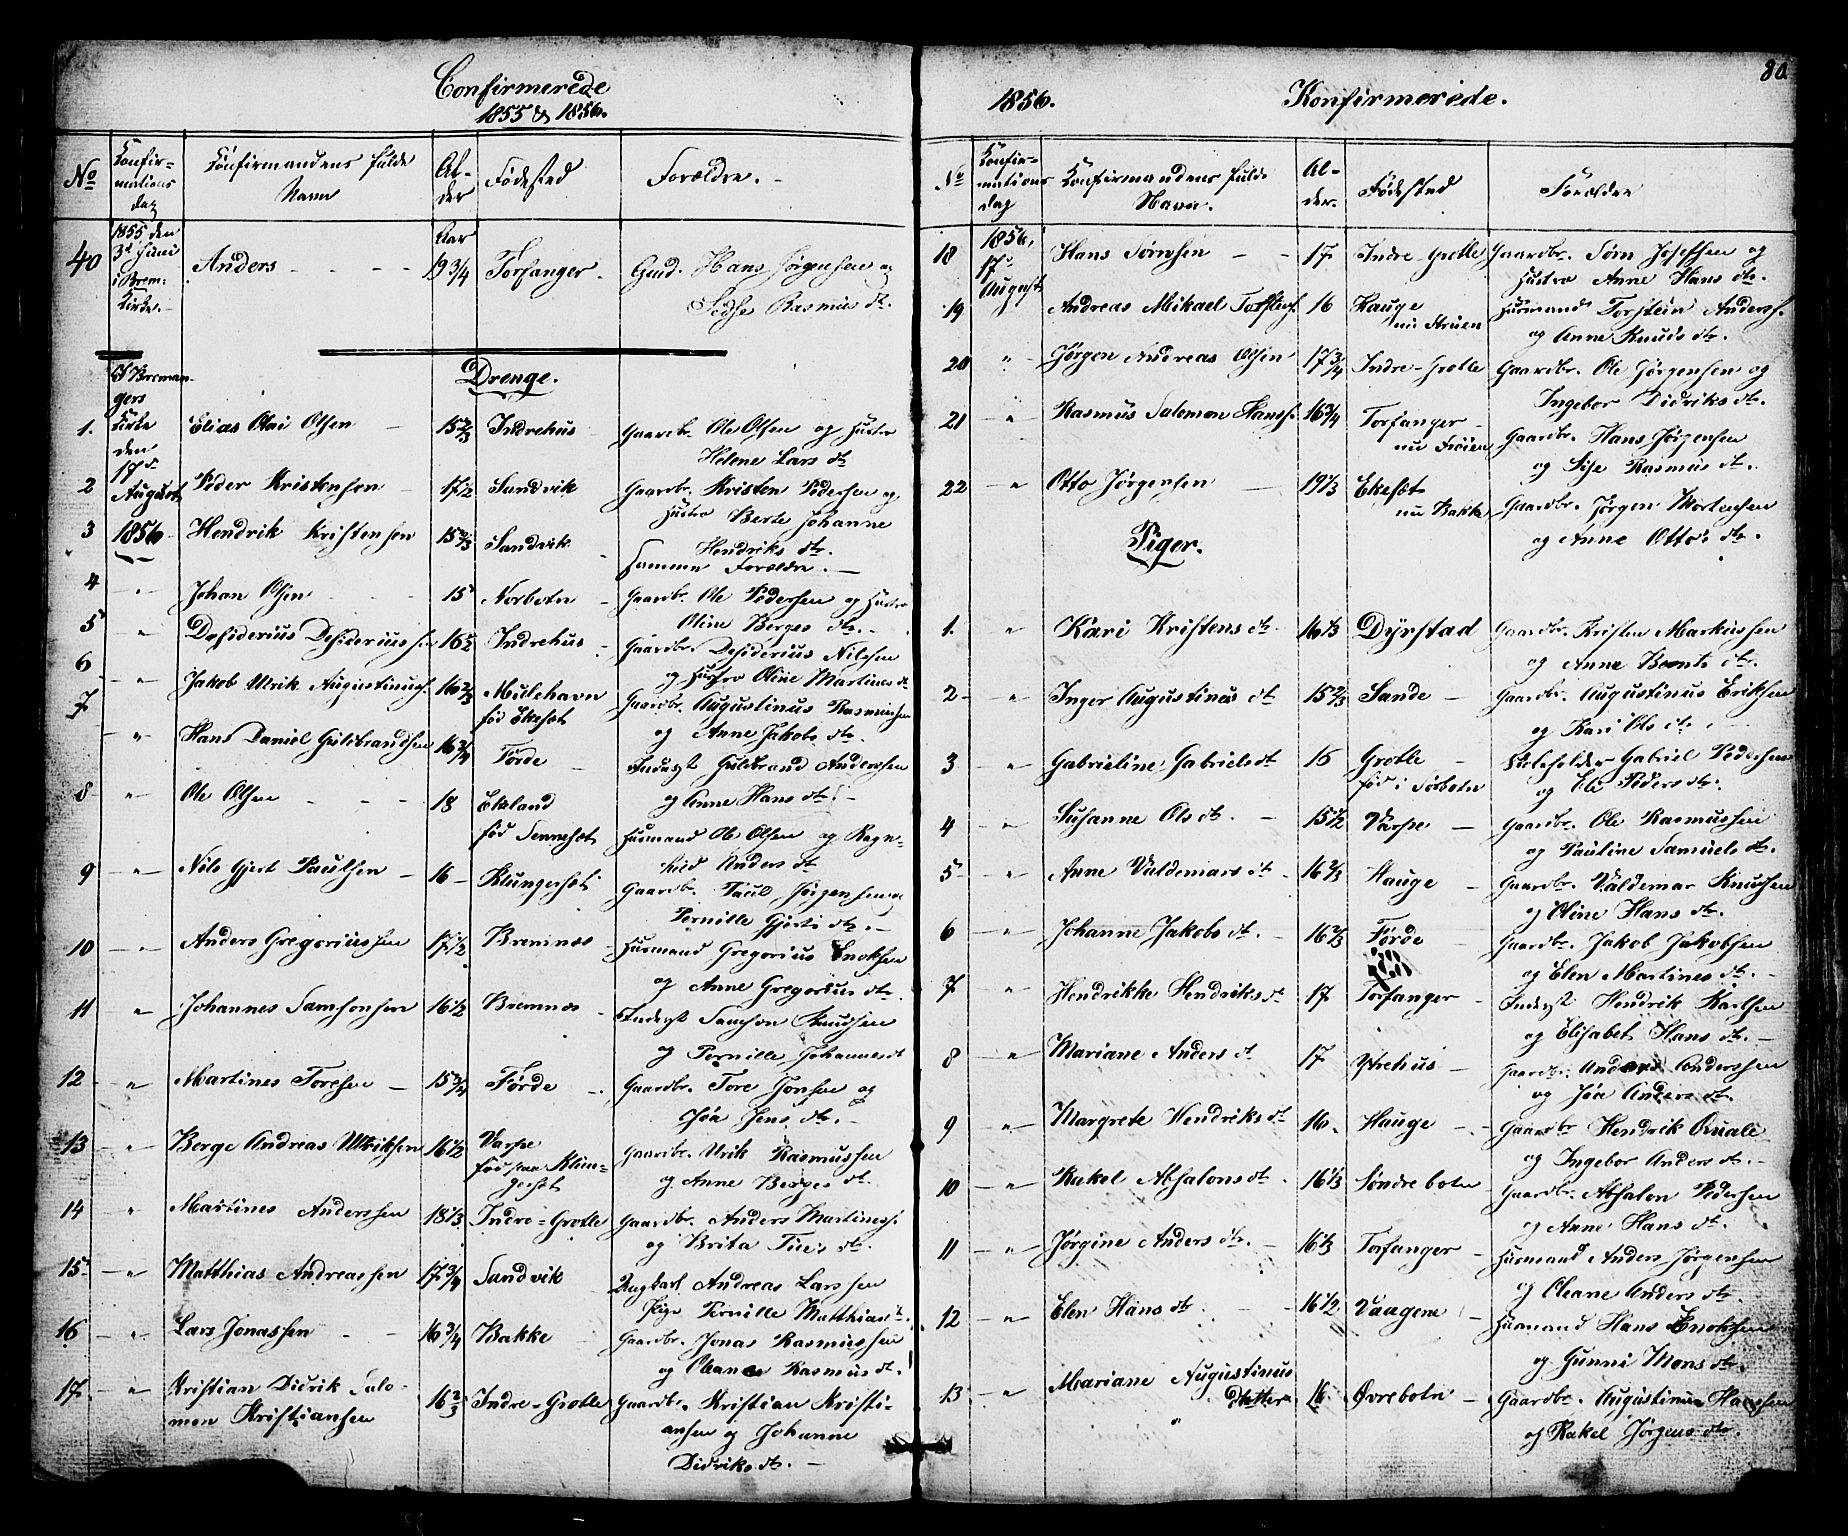 Confirmerede
1855 & 1856.
No Konfir= Konfirmandens fulde Al-
mations Navn der Fødested Forældre. -
dag
40 1855 den 3d Juni i Brem: Kirke. - Anders - - - - Aar 19 3/4 Torfanger - Gmd. Hans Jørgensen og
Sidse Rasmus dtr.
I Bremangers Kirke den 17de August 1856
Drenge.
1. Elias Olai Olsen - 15 2/3 Indrehus - Gaardbr. Ole Olsen og Hustro
Helene Lars dtr
2 Peder Kristensen - 17 1/2 Sandvik Gaardbr. Kristen Pedersen og
Hustro Berte Johanne
Hendriks dtr.
3 Hendrik Kristensen 15 2/3 Sandvik - Samme Forældre. -
4 - " - Johan Olsen - - - 15 Norbotn - Gaardbr. Ole Pedersen og Hustro
Oline Berges dtr. -
5 " Desiderius Desideriussen 16 1/2 Indrehus - Gaardbr. Desiderius Nilssen
og Hustro Oline Martines dt
6 - " Jakob Ulrik Augustinuss. 16 2/3 Mulehavn Gaardbr. Augustinus Rasmussen
fød Ekeset og Anne Jakobs dtr.
7 - " Hans Daniel Guldbrandsen 16 3/4 Førde - Inderst Guldbrand Anderssen
og Anne Hans dtr. -
8 - " - Ole Olsen - - - 18 Ekeland
fød Senneset Husmand Ole Olsen og Ragn-
hild Anders dtr
9 - " - Nils Gjert Paulsen - 16 - Klungerset Gaardbr. Paul Jørgensen og
Pernille Gjerts dtr. -
10 - " Anders Gregoriussen 17 1/2 Bremnes - Husmand Gregorius Enoksen
og Anne Gregorius dtr.
11 " Johannes Samsonsen 16 1/2 Bremnes - Inderst Samson Knudsen
og Pernille Johannes dt
12 - " Martines Toresen - 15 3/4 Førde - Gaardbr. Tore Jonsen og
Jóa Jens dtr. -
13 - " - Berge Andreas Ulriksen 16 1/2 Varpe Gaardbr. Ulrik Rasmussen
fød paa Klun-
gerset og Anne Berges dt.
14 " Martines Anderssen 18 1/3 Indre-Grotle Gaardbr. Anders Martiness.
og Brita Tue's dt.
15 - " - Matthias Andreassen 17 3/4 Sandvik Ungkarl Andreas Larssen
Pige Pernille Matthias dt.
16 - " - Lars Jonassen - - 16 3/4 Bakke - Gaardbr. Jonas Rasmussen
og Oleane Rasmus dt.
17 - " Kristian Didrik Salo- 16 2/3 Indre-Grotle Gaardbr. Kristian Kristi-
mon Kristiansen ansen og Johanne
Didriks dt. -
80.
1856. Konfirmerede.
No Konfir= Konfirmandens fulde Al-
mations Navn. der. Fødested Forældre
dag
18 1856, 17de August Hans Sørnsen - - 17 Indre-Grotle Gaardbr. Sørn Josefsen og
Hustro Anne Hans dtr.
19 Andreas Mikael Torstens. 16 Hauge Husmand Torstein Anderss.
nu Struen og Anne Knuds dtr.
20 " Jørgen Andreas Olsen 17 3/4 Indre-Grotle Gaardbr. Ole Jørgensen og
Ingebor Didriks dtr.
21 " Rasmus Salomon Hanss. 16 3/4 Torfanger - Gaardbr. Hans Jørgensen
nu Frøien og Sise Rasmus dt.
22 - " Otto Jørgensen - 19 1/3 Ekeset Gaardbr. Jørgen Mortensen
nu Bakke og Anne Otto's dt.
Piger.
1. " Kari Kristens dt. 16 1/3 Dyrstad Gaardbr. Kristen Markussen
og Anne Bents dt.
2 - " Inger Augustinus dt 15 2/3 Sande - Gaardbr. Augustinus Eriksen
og Kari Ols dt.
3 - " - Gabrieline Gabriels dt 15 Grotle - Skoleholder Gabriel Pedersen
fød i Sørbotn og Eli Peders dtr.
4 - " Susanne Ols dt. - 15 1/2 Varpe - Gaardbr. Ole Rasmussen
og Pauline Samuels dt.
5 - " - Anne Valdemars dt - 16 2/3 Hauge - Gaardbr. Valdemar Knudsen
og Oline Hans dt.
6 - " - Johanne Jakobs dt. - 16 2/3 Førde - Gaardbr. Jakob Jakobsen
og Elen Martines dt. -
7 - " - Hendrikke Hendriks dt 17 Torfanger - Inderst Hendrik Karlsen
og Elisabet Hans dt. -
8 - " Mariane Anders dt 17 Ytrehus - Gaardbr. Anders Anderssen
og Jóa Anders dt.
9 - " Margrete Hendriks dt 16. Hauge - - Gaardbr Hendrik Quale
og Ingebor Anders dt. -
10 - " Rakel Absalons dt. - 16 1/3 Søndre botn - Gaardbr. Absalon Pedersen
og Anne Hans dt.
11 - " - Jørgine Anders dtr. - 16 1/3 Torfanger - Husmand Anders Jørgensen
og Oleane Anders dt.
12 - " Elen Hans dt. - - 16 1/2 Vaagene - Husmand Hans Enoksen
og Gunni Mons dt.
13 - " Mariane Augustinus
Datter - 16 Øvrebotn - Gaardbr. Augustinus Hanssen
" og Rakel Jørgens dtr.